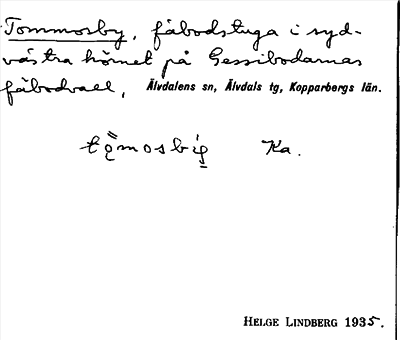 Tommosby, fäbodstuga i syd-
västra hörnet på Gessibodarnas
fäbodvall, Älvdalens sn, Älvdals tg, Kopparbergs län.
Ka.
HELGE LINDBERG 1935.